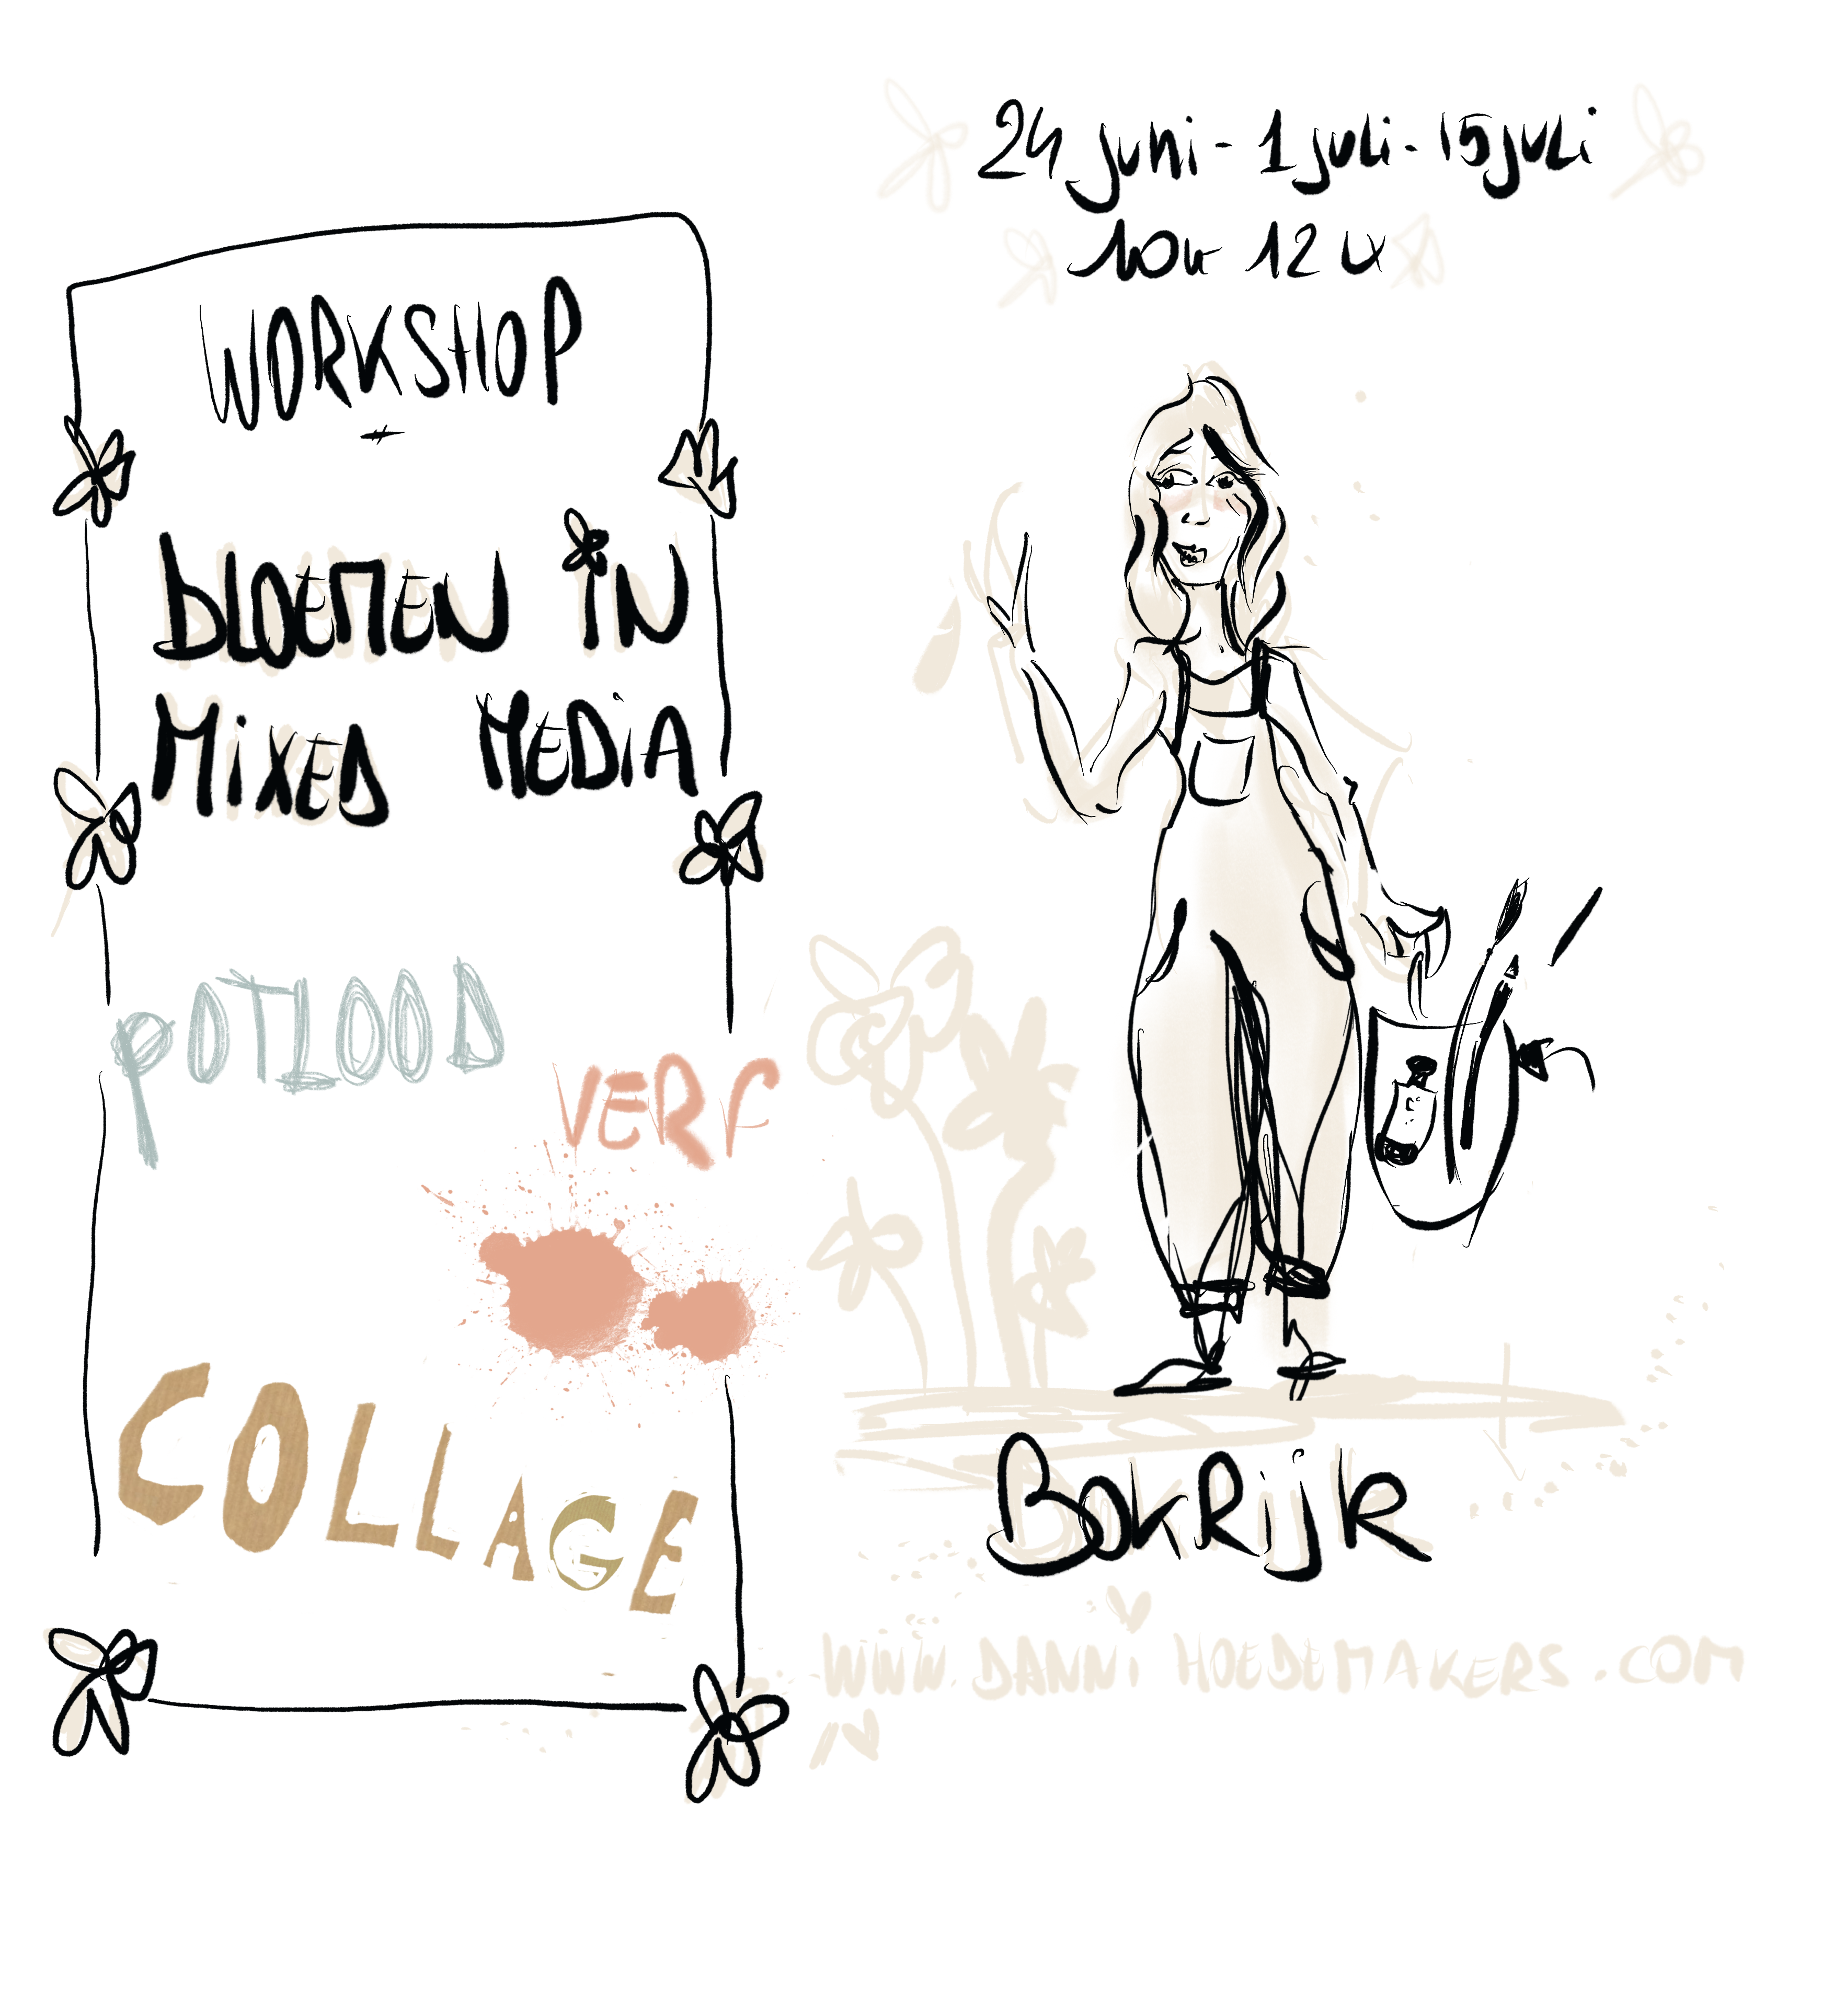 24 juni - 1 juli - 15 juli
10u 12u
WORKSHOP
bLOEMEN iN
MiXED MEDiA
POTLOOD
VERF
COLLAGE
BOKRijk
www.DANNiHOEDEMAKERS.COM